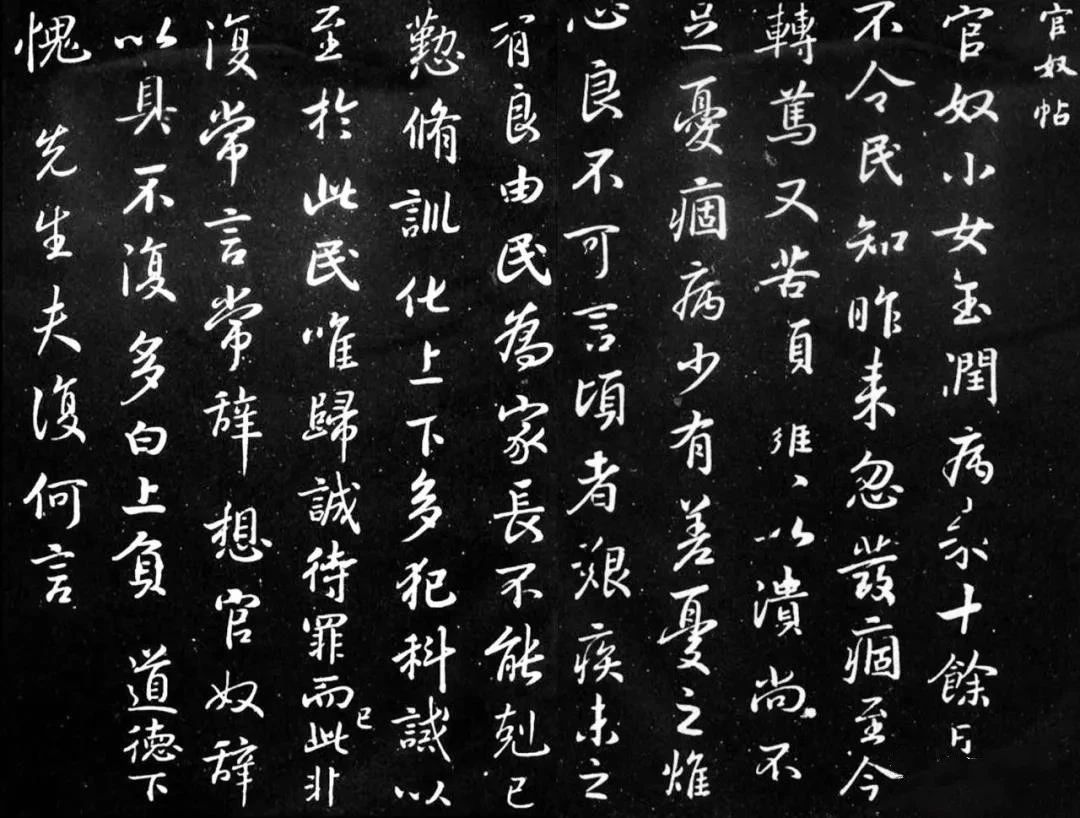 官奴帖
官奴小女玉潤病來十餘日
不令民知昨來忽發痼至今
轉篤又苦頭癰以潰尚不
足憂痼病少有差憂之燋
心良不可言頃者艱疾未之
有良由民為家長不能剋己
懃脩訓化上下多犯科誡以
至於此民唯歸誠待罪而已此非
復常言常辭想官奴辭
以具不復多白上負道德下
愧先生夫復何言